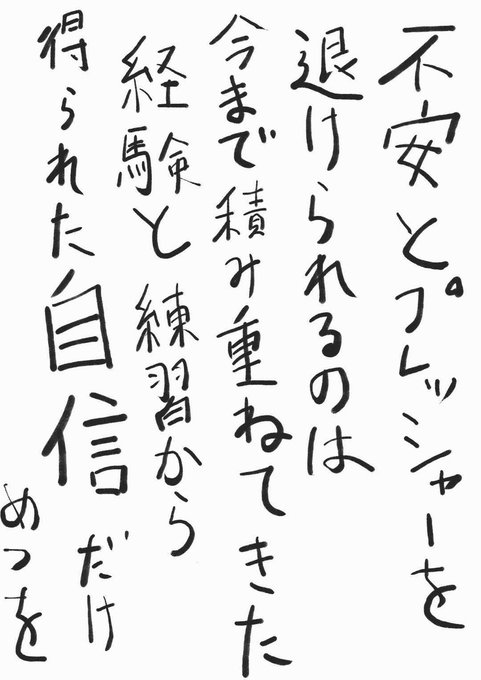 不安とプレッシャーを
退けられるのは
今まで積み重ねてきた
経験と練習から
得られた自信だけ
めつを